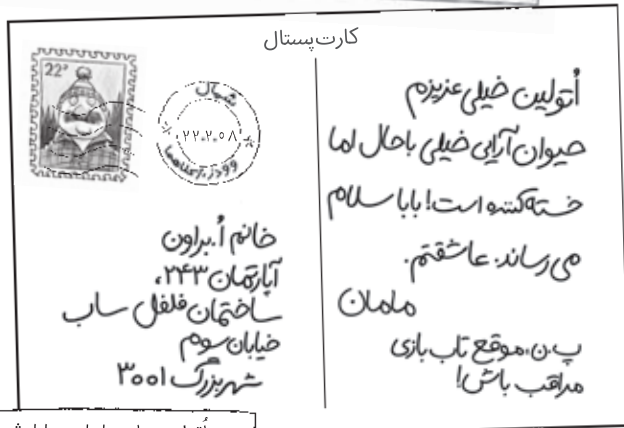 کارت پستال
22ª
شمال
۲۲.۲.۵۸
اُتولین خیلی عزیزم
حیوان‌آرایی خیلی باحال اما
خسته‌کننده است! بابا سلام
می‌رساند. عاشقتم.
مامان
پ.ن. موقع تاب‌بازی
مراقب باش!
خانم اُ. براون
آپارتمان ۲۴۳،
ساختمان فلفل ساب
خیابان سوم
شهر بزرگ ۳۰۰۱